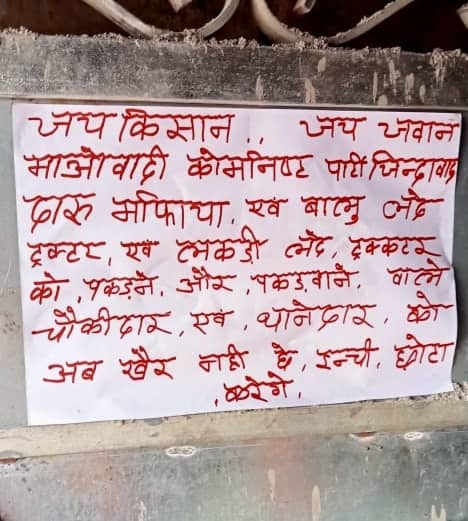 जय किसान .. जय जवान
माओवादी कोमनिष्ट पार्टी जिन्दावाद
दारू माफिाया, एवं बालु लोद
ट्रक्टर, एवं लकडी लोद, ट्रक्कटर
को, पकडने, और, पकड, वाने, वाले
चौकीदार, एवं, थानेदार, को
अब खैर नही है, इन्ची, छोटा
, करेगे,